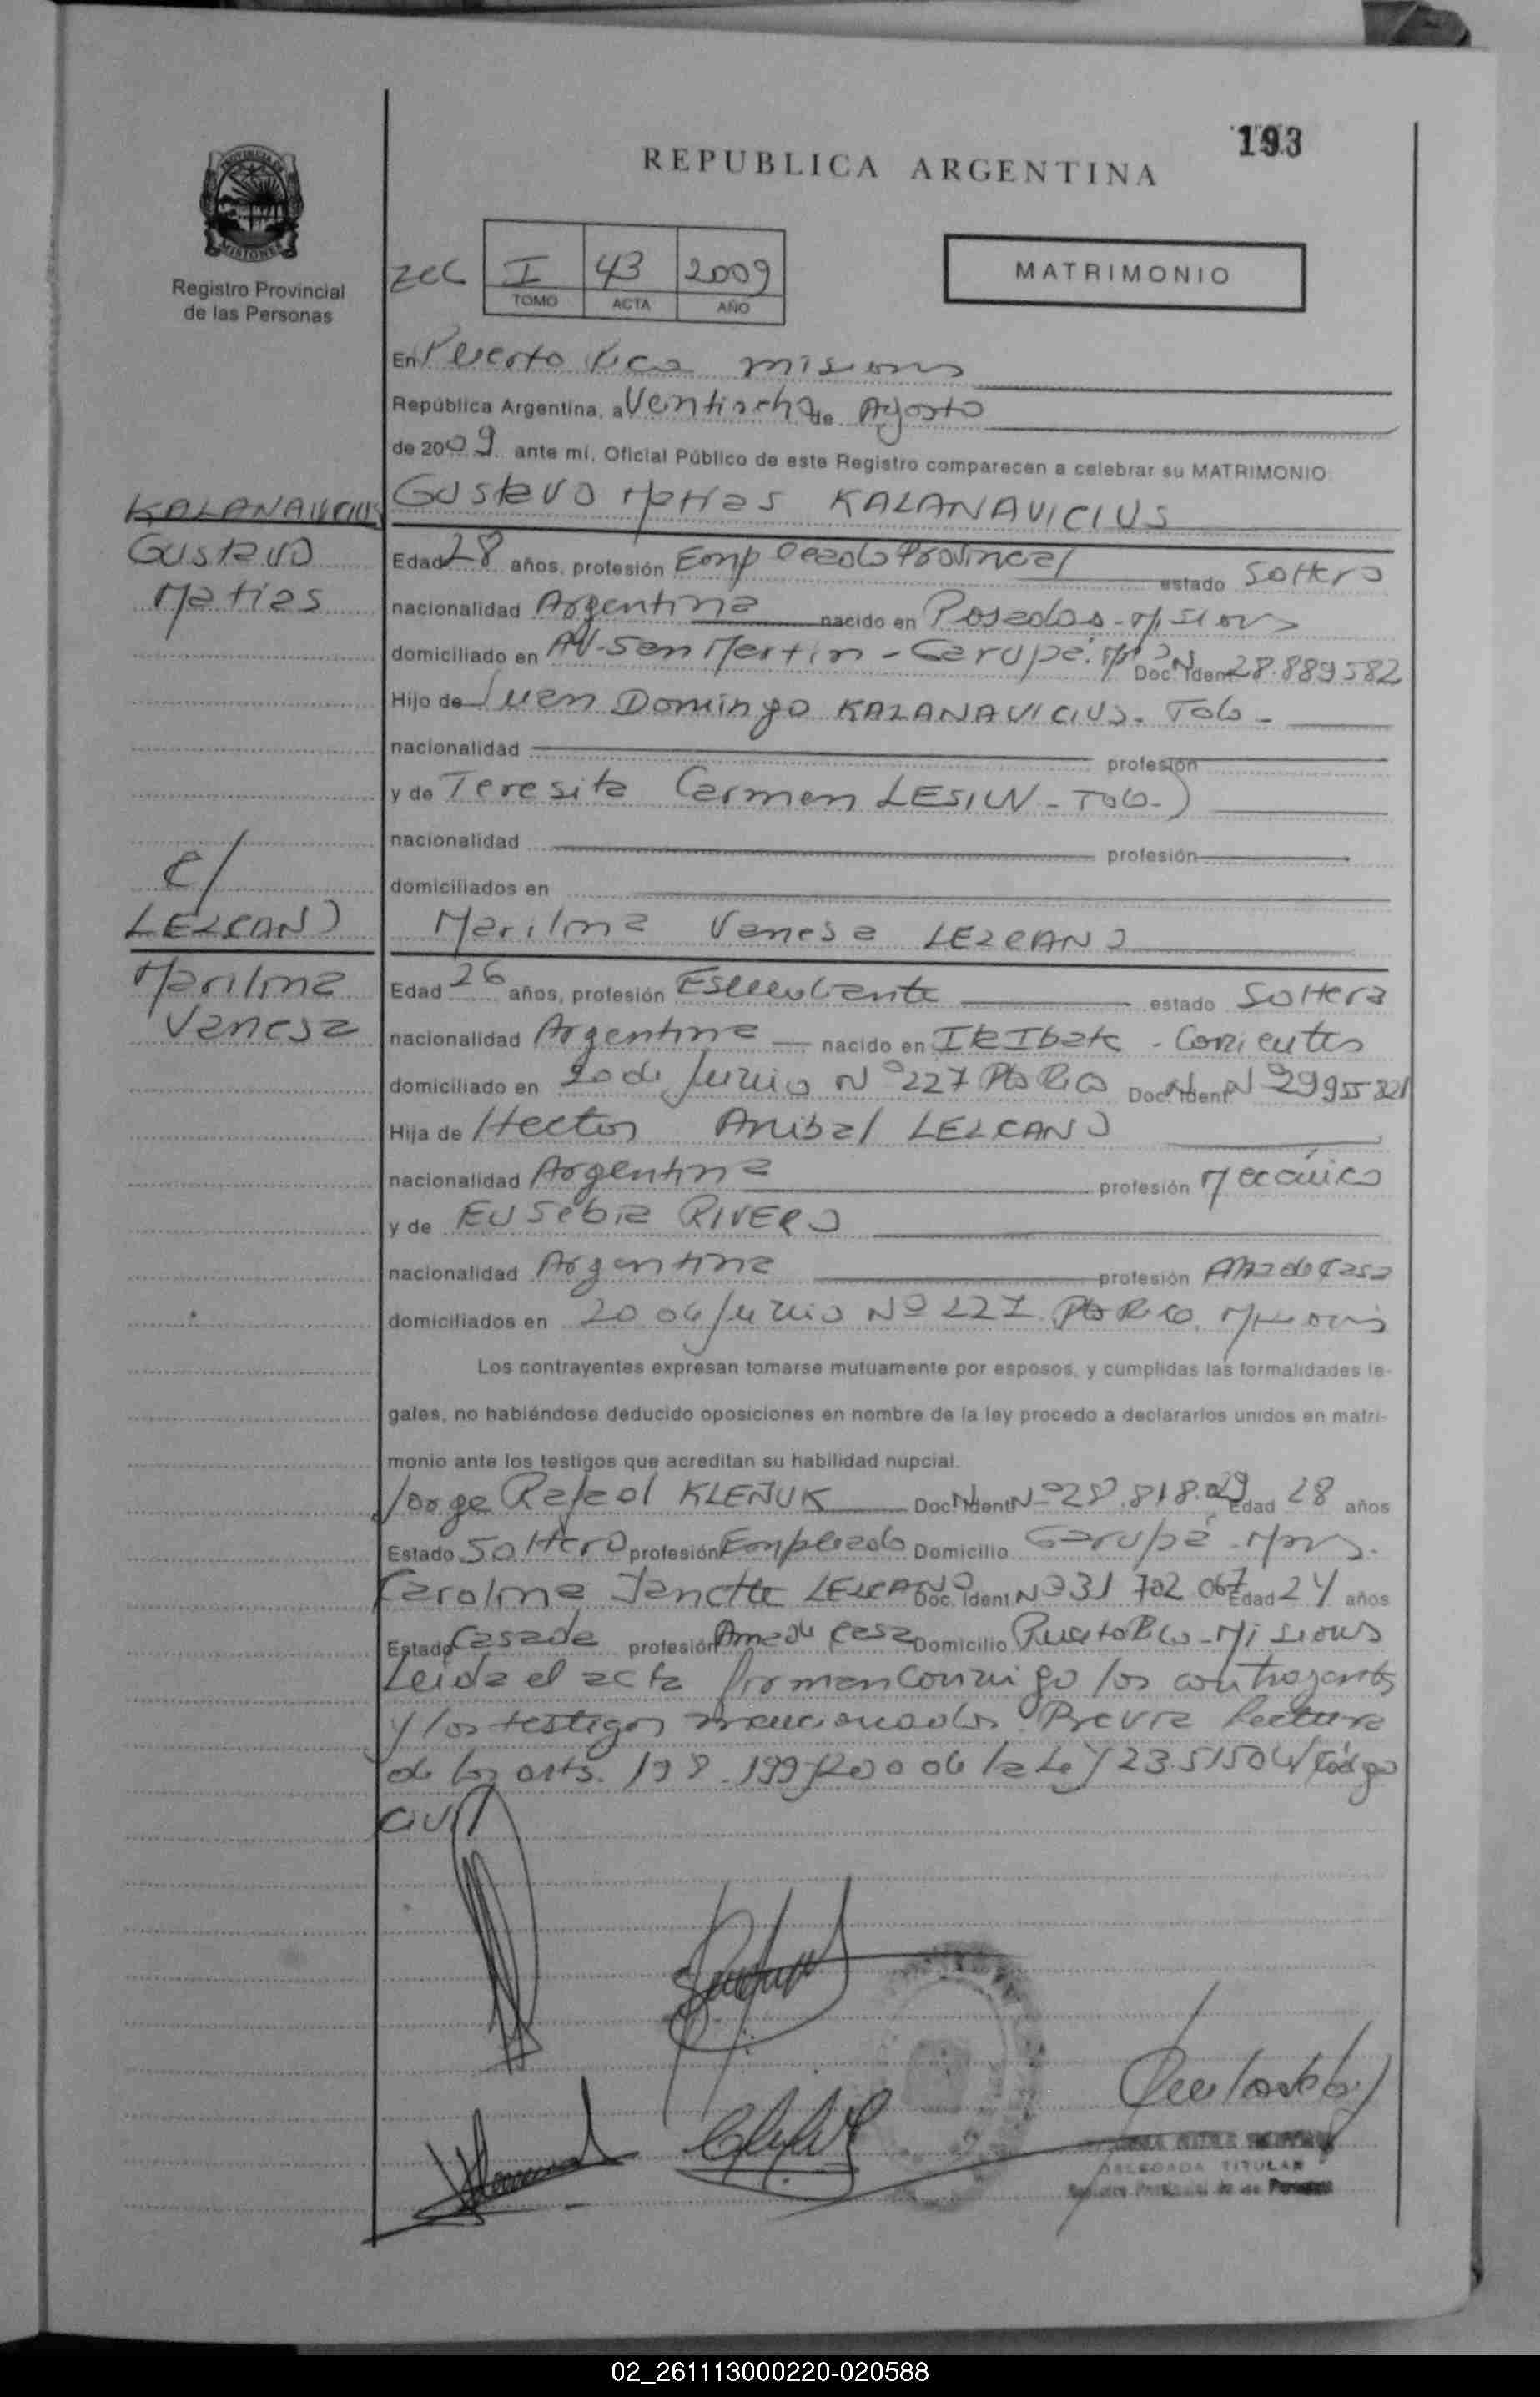 193
REPUBLICA ARGENTINA
PROVINCIA DE
MISIONES
Registro Provincial
de las Personas
I 43 2009
TOMO ACTA AÑO
MATRIMONIO
En Puerto Rico Misiones
República Argentina, a Veintiocho de Agosto
de 2009 ante mí, Oficial Público de este Registro comparecen a celebrar su MATRIMONIO
KALANAVICIUS
Gustavo
Matias
Gustavo Matias KALANAVICIUS
Edad 28 años, profesión Empleado Provincial estado Soltero
nacionalidad Argentina nacido en Posadas - Misiones
domiciliado en AV. San Martin - Garupá. Doc. Ident. 28.889582
Hijo de Juan Domingo KALANAVICIUS.
nacionalidad profesión
y de Teresita Carmen LESIW
nacionalidad profesión
domiciliados en
c/
LEZCANO
Marilina
Vanesa
Marilina Vanesa LEZCANO
Edad 26 años, profesión Estudiante estado Soltera
nacionalidad Argentina nacido en Corrientes
domiciliado en 20 de Junio Nº 227 Pto Rico Doc. Ident. Nº 29955321
Hija de Hector Anibal LEZCANO
nacionalidad Argentina profesión Mecánico
y de Eusebia RIVERO
nacionalidad Argentina profesión Ama de Casa
domiciliados en 20 de Junio Nº 227 Pto Rico. Misiones
Los contrayentes expresan tomarse mutuamente por esposos, y cumplidas las formalidades le-
gales, no habiéndose deducido oposiciones en nombre de la ley procedo a declararlos unidos en matri-
monio ante los testigos que acreditan su habilidad nupcial.
Jorge Rafael KLEÑUK Doc. Ident. Nº 28.818.029 Edad 28 años
Estado Soltero profesión Empleado Domicilio Garupá - Mnes.
Carolina Janette LEZCANO Doc. Ident. Nº 31 702 067 Edad 24 años
Estado Casada profesión Ama de Casa Domicilio Puerto Rico - Misiones
Leida el acta firman conmigo los contrayentes
y los testigos mencionados. Previa lectura
de los arts. 198. 199 y 200 de la Ley 23.515 del Código
Civil
DELEGADA TITULAR
Registro Provincial de las Personas
02_261113000220-020588